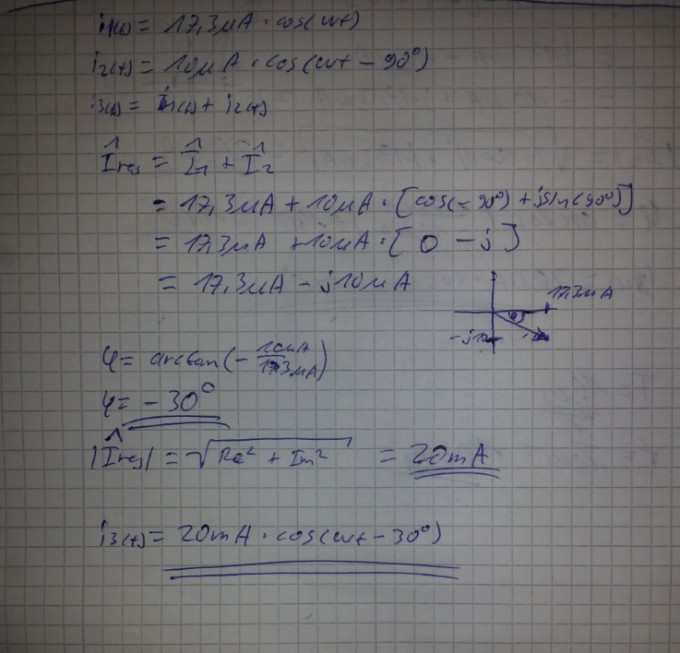 i1(t) = 17,3mA · cos(ωt)
i2(t) = 10mA · cos(ωt - 90°)
i3(t) = i1(t) + i2(t)
Îres = Î1 + Î2
= 17,3mA + 10mA · [cos(-90°) + jsin(90°)]
= 17,3mA + 10mA · [0 - j]
= 17,3mA - j10mA
17,3mA
φ
φ = arctan(- 10mA / 17,3mA)
φ = -30°
|Îres| = √Re² + Im² = 20mA
i3(t) = 20mA · cos(ωt - 30°)